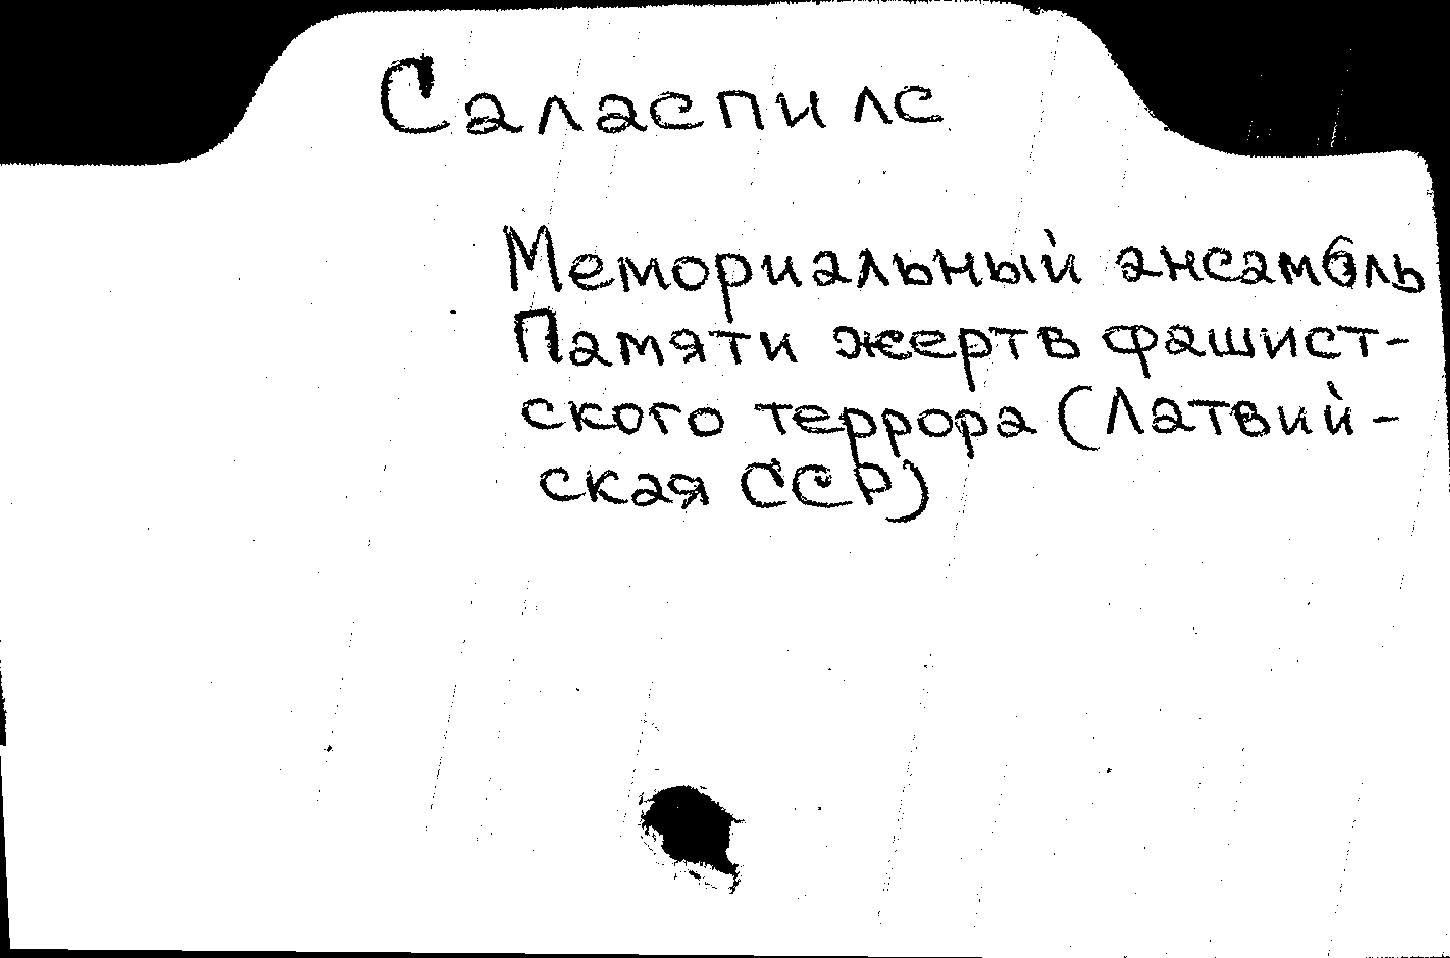 Саласпилс
Мемориальный ансамбль
Памяти жертв фашист-
ского террора (Латвий-
ская ССР)